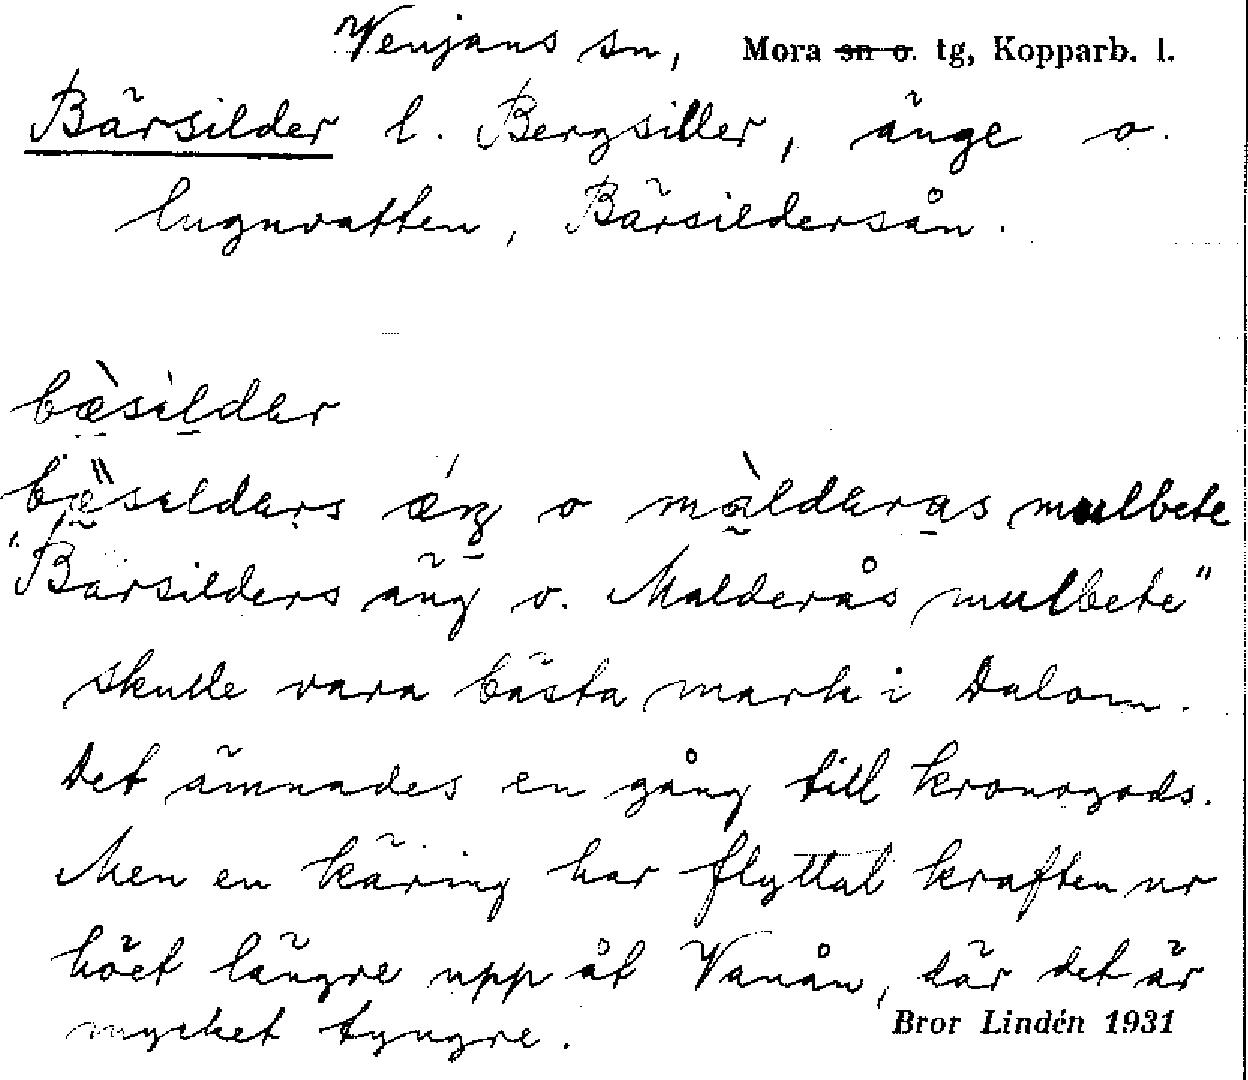 Venjans sn, Mora sn o. tg, Kopparb. l.
Bärsilder l. Bergsiller, änge o.
lugnvatten, Bärsildersån.
bæ̀sìldər
bæ̀sıldərs ǽŋ o màldəras mulbete
"Bärsilders äng o. Malderås mulbete"
skulle vara bästa mark i Dalom.
Det ämnades en gång till kronogods.
Men en käring har flyttat kraften ur
höet längre upp åt Vanån, där det är
mycket tyngre.
Bror Lindén 1931